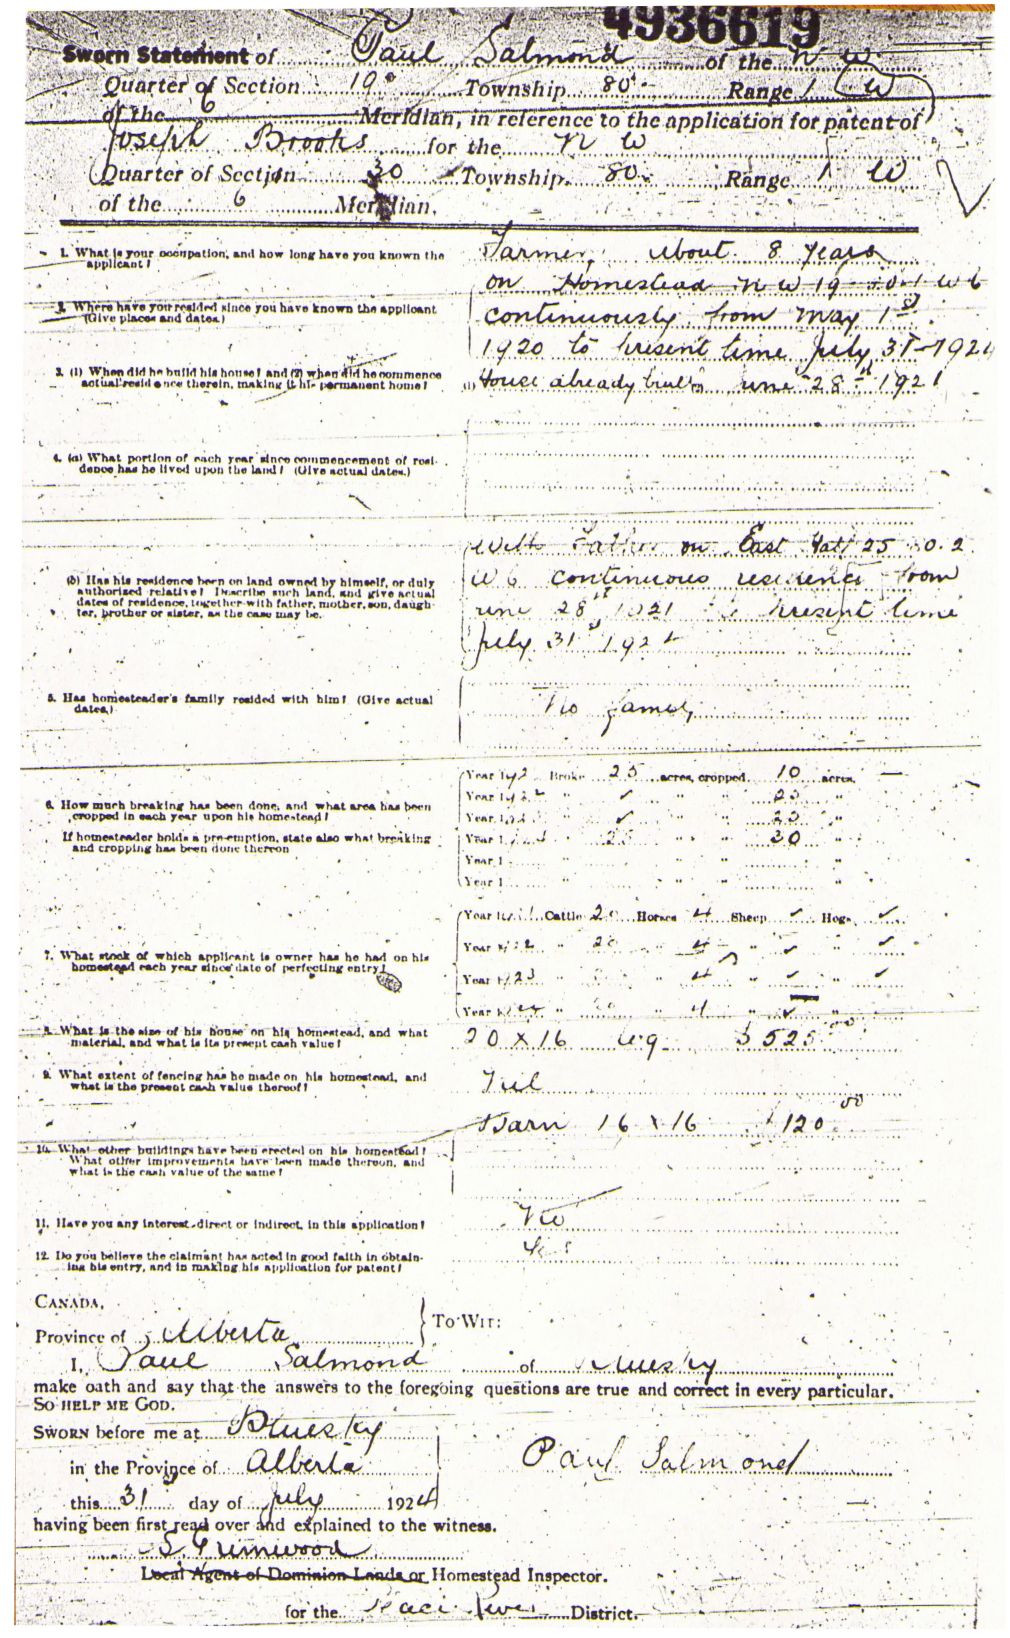 4936619
Sworn Statement of Paul Salmond of the N W
Quarter of Section 19 Township 80 Range 1 W
of the 6 Meridian, in reference to the application for patent of
Joseph Brooks for the N W
Quarter of Section 30 Township 80 Range 1 W
of the 6 Meridian.
1. What is your occupation, and how long have you known the
applicant?
Farmer, about 8 years
2. Where have you resided since you have known the applicant
(Give places and dates.)
on Homestead N W 19 80-1 W 6
continuously from May 1st
1920 to present time July 31-1924
3. (1) When did he build his house? and (2) when did he commence
actual residence therein, making it his permanent home?
(1) House already built June 28th 1921
4. (a) What portion of each year since commencement of resi-
dence has he lived upon the land? (Give actual dates.)
(b) Has his residence been on land owned by himself, or duly
authorized relative? Describe such land, and give actual
dates of residence, together with father, mother, son, daugh-
ter, brother or sister, as the case may be.
With Father on East Half 25 80.2
W 6 continuous residence from
June 28th 1921 to present time
July 31st 1924
5. Has homesteader's family resided with him? (Give actual
dates.)
No family
6. How much breaking has been done, and what area has been
cropped in each year upon his homestead?
If homesteader holds a pre-emption, state also what breaking
and cropping has been done thereon
Year 192 Broke 25 acres, cropped 10 acres. —
Year 1922 " ✓ " " 25 "
Year 192 " ✓ " " 25 "
Year 1924 " 25 " " 30 "
Year 1 " " " "
Year 1 " " " "
7. What stock of which applicant is owner has he had on his
homestead each year since date of perfecting entry?
Year 1921 Cattle 20 Horses 4 Sheep ✓ Hogs ✓
Year 1922 " 20 " 4 " ✓ " ✓
Year 1923 " " 4 " ✓ " ✓
Year 1924 " 20 " 4 " ✓
8. What is the size of his house on his homestead, and what
material, and what is its present cash value?
20 x 16 Log $ 525 00
9. What extent of fencing has he made on his homestead, and
what is the present cash value thereof?
Nil
Barn 16 x 16 $120 00
10. What other buildings have been erected on his homestead?
What other improvements have been made thereon, and
what is the cash value of the same?
11. Have you any interest direct or indirect, in this application?
No
12. Do you believe the claimant has acted in good faith in obtain-
ing his entry, and in making his application for patent?
Yes
CANADA,
Province of Alberta
TO WIT:
I, Paul Salmond of Bluesky
make oath and say that the answers to the foregoing questions are true and correct in every particular.
SO HELP ME GOD.
SWORN before me at Bluesky
in the Province of Alberta
Paul Salmond
this 31 day of July 1924
having been first read over and explained to the witness.
S. Grimwood
Local Agent of Dominion Lands or Homestead Inspector.
for the Peace River District.